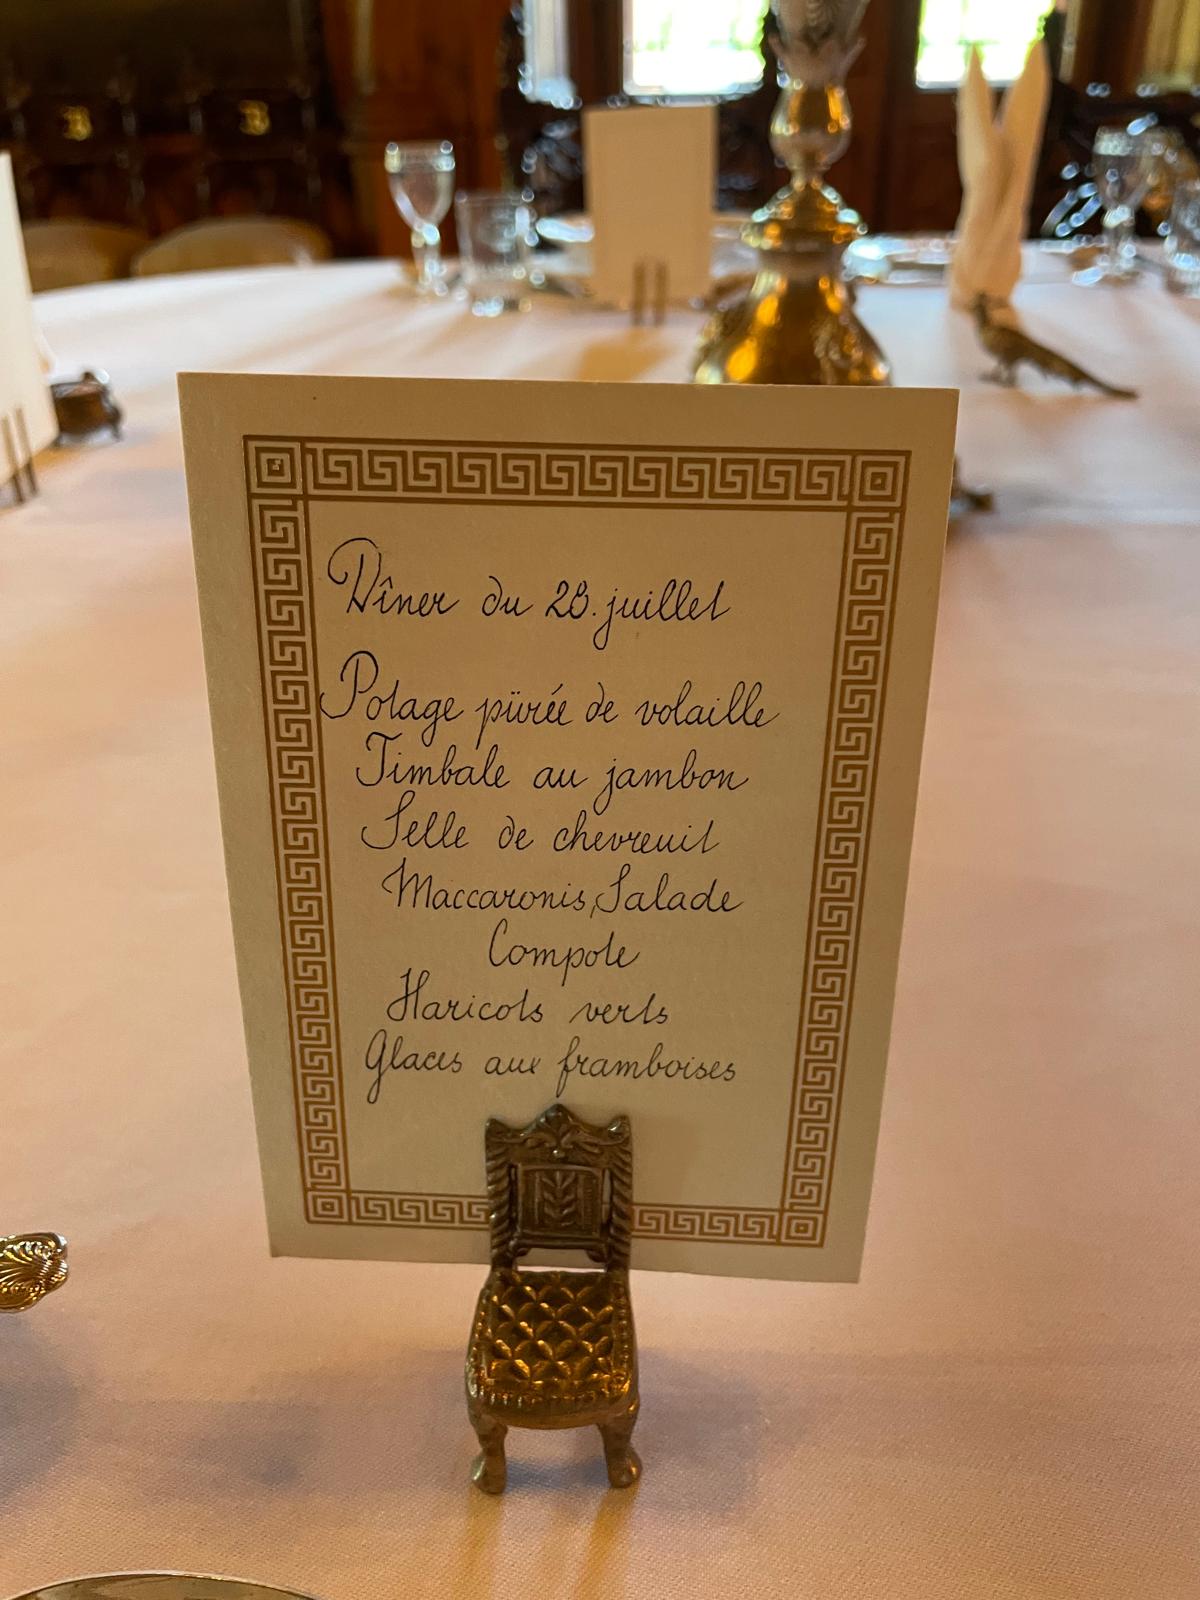 Dîner du 28. juillet
Potage pürée de volaille
Timbale au jambon
Selle de chevreuil
Maccaronis, Salade
Compote
Haricots verts
Glaces aux framboises